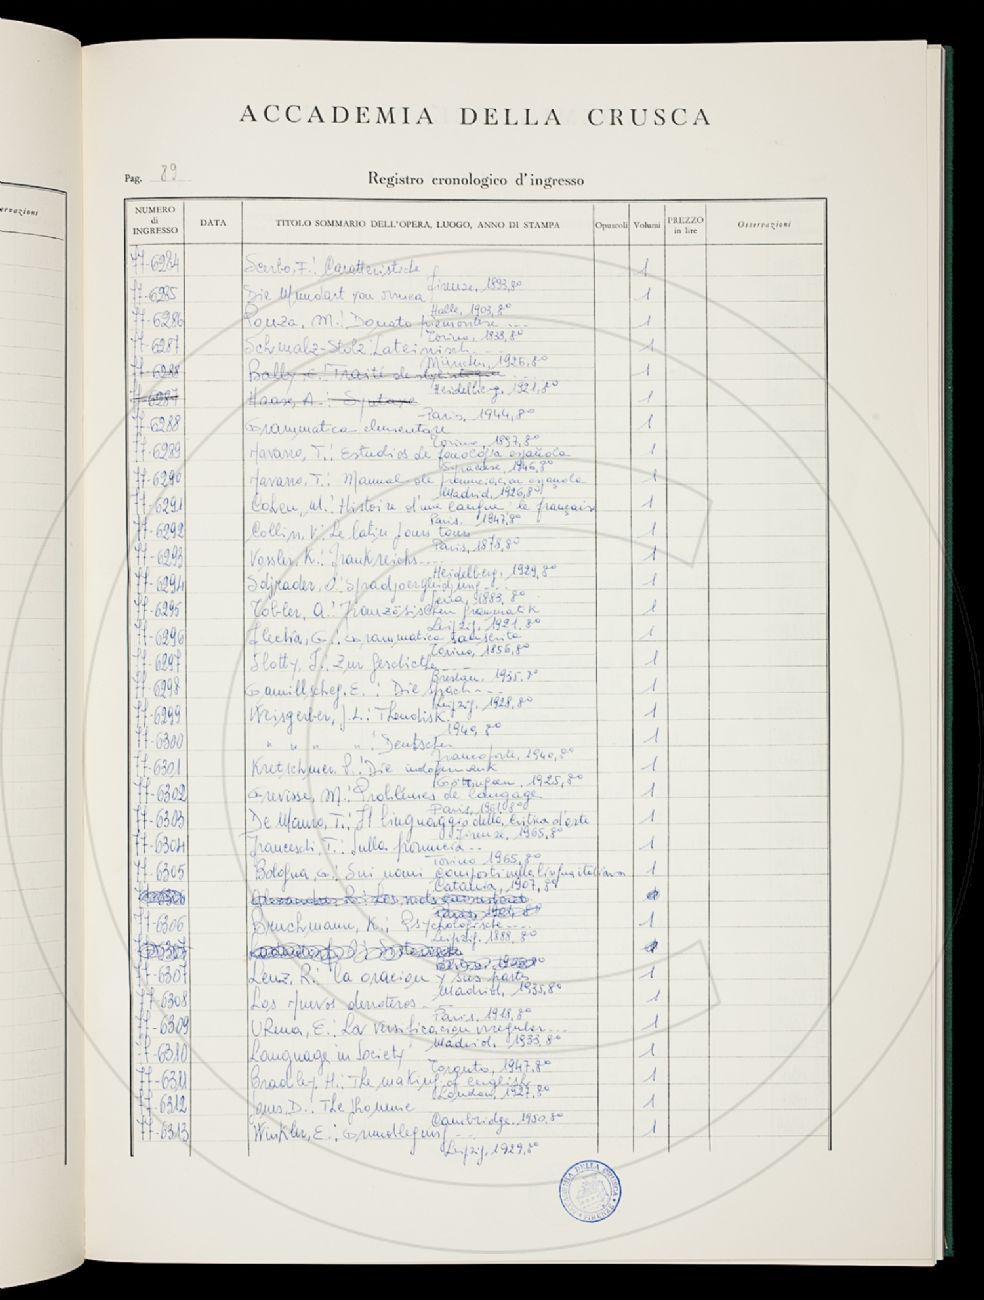 ervazioni
ACCADEMIA DELLA CRUSCA
Pag. 89
Registro cronologico d'ingresso
NUMERO di INGRESSO DATA TITOLO SOMMARIO DELL'OPERA, LUOGO, ANNO DI STAMPA Opuscoli Volumi PREZZO in lire Osservazioni
77-6284 Scerbo, F.: Caratteristiche 1
Firenze, 1893, 8º
77-6285 Die Mundart von 1
Halle, 1903, 8º
77-6286 Ponza, M.: Donato piemontese ... 1
Torino, 1838, 8º
77-6287 Schmalz-Stolz: Lateinisch... 1
München, 1926, 8º
77-6288 Bally, C.: Traité de stylistique 1
Heidelberg, 1921, 8º
77-6287 Haase, A.: Syntaxe 1
Paris, 1944, 8º
77-6288 Grammatica elementare 1
Torino, 1897, 8º
77-6289 Navarro, T.: Estudios de fonología española 1
Syracuse, 1946, 8º
77-6290 Navarro, T.: Manual de pronunciacion española 1
Madrid, 1926, 8º
77-6291 Cohen, M.: Histoire d'une langue: le français 1
Paris, 1947, 8º
77-6292 Collin, V.: Le latin pour tous 1
Paris, 1878, 8º
77-6293 Vossler, K.: Frankreichs... 1
Heidelberg, 1929, 8º
77-6294 1
Jena, 1883, 8º
77-6295 Tobler, A.: Französischen grammatik 1
Leipzig, 1921, 8º
77-6296 Flechia, G.: Grammatica sanscrita 1
Torino, 1856, 8º
77-6297 Slotty, F.: Zur geschichte... 1
Breslau, 1935, 8º
77-6298 Gamillscheg, E.: Die Sprach... 1
Leipzig, 1928, 8º
77-6299 Weisgerber, J. L.: Theudisk 1
1940, 8º
77-6300 " " " ": Deutschen 1
Francoforte, 1940, 8º
77-6301 Kretschmer, P.: Die indogermanik 1
Göttingen, 1925, 8º
77-6302 Grevisse, M.: Problèmes de langage 1
Paris, 1961, 8º
77-6303 De Mauro, T.: Il linguaggio della critica d'arte 1
Firenze, 1965, 8º
77-6304 Franceschi, T.: Sulla pronuncia... 1
Torino 1965, 8º
77-6305 Bologna, G.: Sui nomi composti nella lingua italiana 1
Catania, 1907, 8º
77-6306 Bruchmann, K.: Psychologische.... 1
Leipzig, 1888, 8º
77-6307 Lenz, R.: La oracion y sus partes 1
Madrid, 1935, 8º
77-6308 Los nuevos derroteros... 1
Paris, 1918, 8º
77-6309 Ureña, E.: La versificacion irregular... 1
Madrid, 1933, 8º
77-6310 Language in Society 1
Toronto, 1947, 8º
77-6311 Bradley, H.: The making of english 1
London, 1927, 8º
77-6312 Jones, D.: The phoneme 1
Cambridge, 1950, 8º
77-6313 Winkler, E.: Grundlegung ... 1
Leipzig, 1929, 8º
ACCADEMIA DELLA CRUSCA FIRENZE